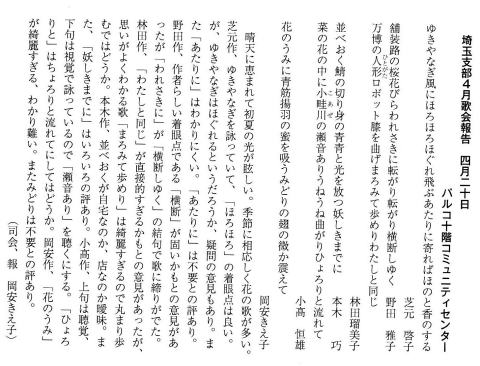 埼玉支部4月歌会報告　四月二十日
パルコ十階コミュニティセンター
ゆきやなぎ風にほろほろほぐれ飛ぶあたりに寄ればほのと香のする
芝元　啓子
舗装路の桜花びらわれさきに転がり転がり横断しゆく
野田　雅子
万博の人形ロボット膝を曲げまろみて歩めりわたしと同じ
ひとがた
林田瑠美子
並べおく鯖の切り身の青青と光を放つ妖しきまでに
本木　巧
菜の花の中に小畦川の瀬音ありうねうね曲がりひょろりと流れて
こあぜ
小髙　恒雄
花のうみに青筋揚羽の蜜を吸うみどりの翅の微か震えて
岡安きえ子
晴天に恵まれて初夏の光が眩しい。季節に相応しく花の歌が多い。
芝元作、ゆきやなぎを詠っていて、「ほろほろ」の着眼点は良い。
が、ゆきやなぎはほぐれるというだろうか、疑問の意見もあり。ま
た「あたりに」はわかりにくい。「あたりに」は不要との評あり。
野田作、作者らしい着眼点である「横断」が固いかもとの意見があ
ったが「われさきに」が「横断しゆく」の結句で歌に締りがでた。
林田作、「わたしと同じ」が直接的すぎるかもとの意見があったが、
思いがよくわかる歌「まろみて歩めり」は綺麗すぎるので丸まり歩
むではどうか。本木作、並べおくが自宅なのか、店なのか曖昧。ま
た、「妖しきまでに」はいろいろの評あり。小髙作、上句は聴覚、
下句は視覚で詠っているので「瀬音あり」を聴くにする。「ひょろ
りと」はちょろりと流れてにしてはどうか。岡安作、「花のうみ」
が綺麗すぎる、わかり難い。またみどりは不要との評あり。
（司会、報　岡安きえ子）